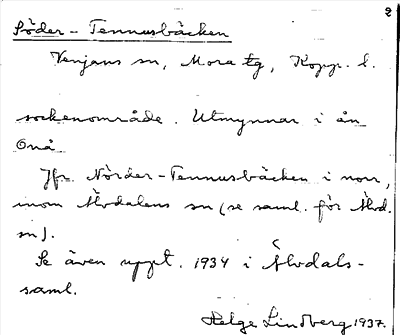 2
Söder-Tennusbäcken
Venjans sn, Mora tg, Kopp. l.
sockenområde. Utmynnar i ån
Onå
Jfr. Nörder-Tennusbäcken i norr,
inom Älvdalens sn (se saml. för Älvd.
sn).
Se även uppt. 1934 i Älvdals-
saml.
Helge Lindberg 1937.